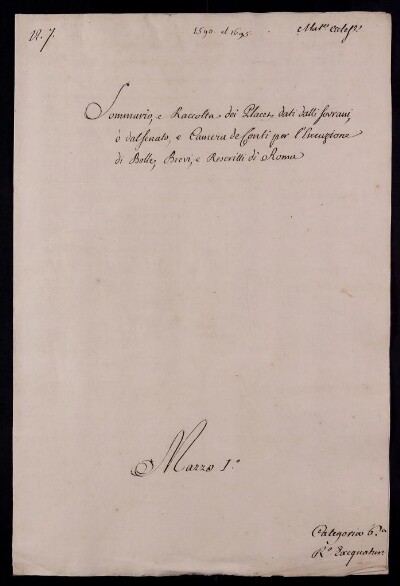 N. 7.
1590. al 1695.
Mat.e eccles.e
Sommario, e Raccolta dei Placet dati dalli Sovrani,
ò dal Senato, e Camera de Conti per l'Esecuzione
di Bolle, Brevi, e Rescritti di Roma
Mazzo 1.o
Categoria 6.a
R.o Exequatur